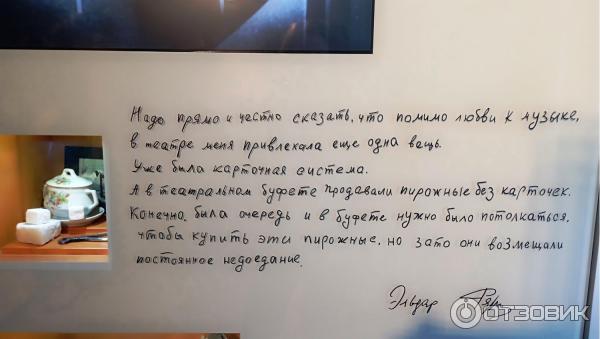 Надо прямо и честно сказать, что помимо любви к музыке,
в театре меня привлекала еще одна вещь.
Уже была карточная система.
А в театральном буфете продавали пирожные без карточек.
Конечно, была очередь и в буфете нужно было потолкаться,
чтобы купить эти пирожные, но зато они возмещали
постоянное недоедание.
Эльдар
ОТЗОВИК